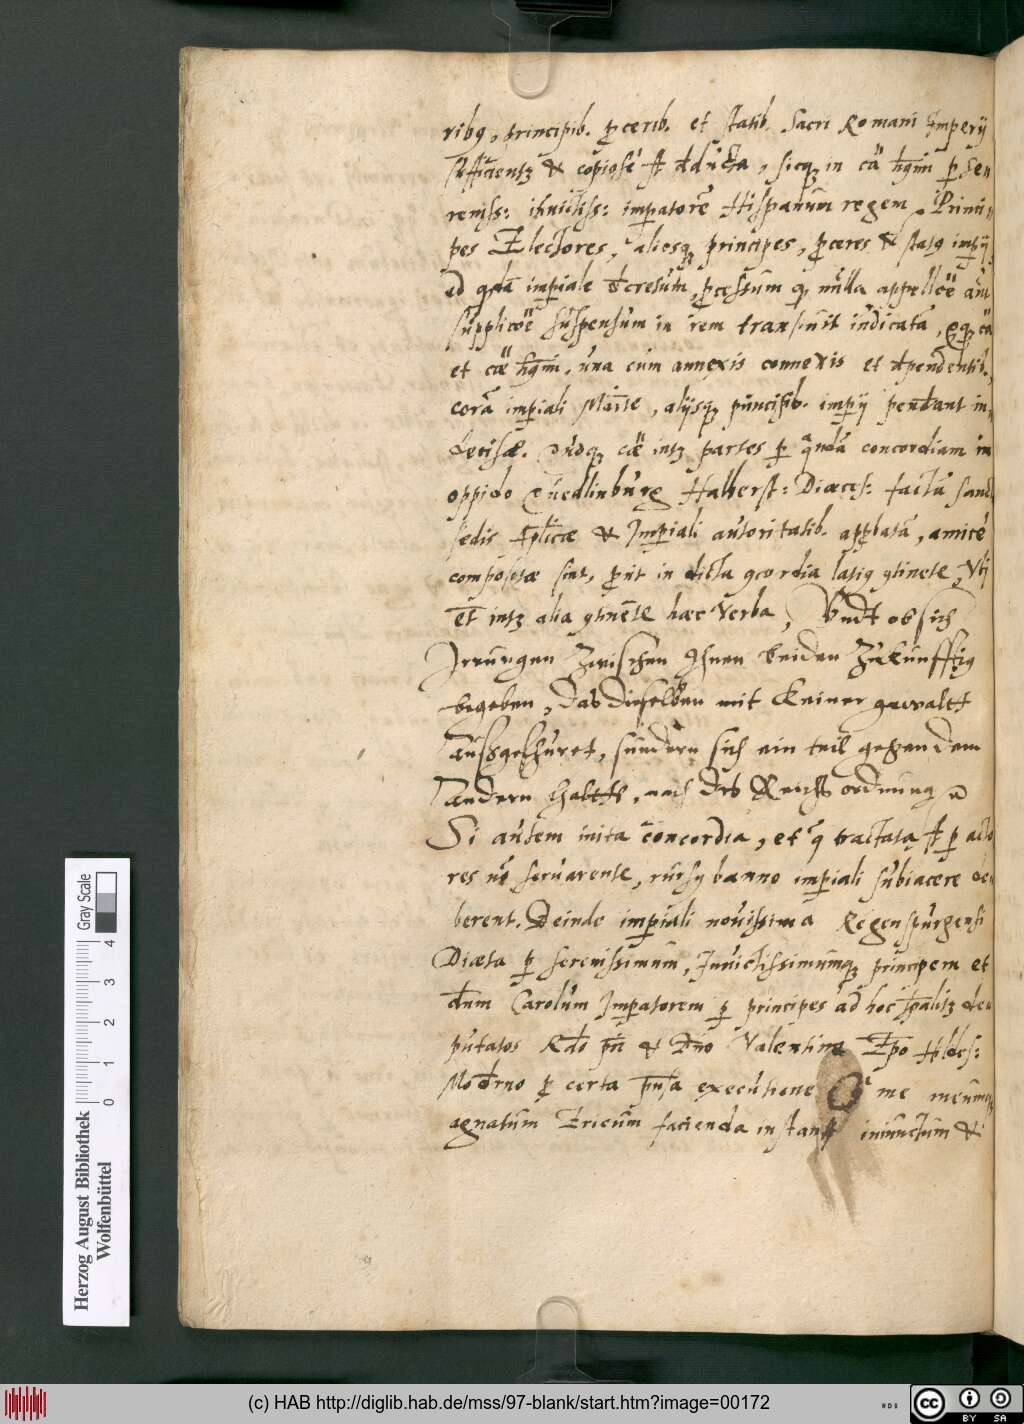 ribꝯ, principib. ꝓcerib. et statib. Sacri Romani Imperij
sufficientꝫ & copiose deducta, sicqꝫ in cā ꝑ Seren
reniss: inuictiss: imꝑatorē Hispanum regem, Princi
pes Electores, aliosqꝫ principes, ꝓceres & statꝯ imꝑij
ad imꝑiale decretum, ꝓcessum qꝫ nulla appellōe aut
supplicōe suspensum in rem transiuit iudicatā,
et cāe una cum annexis connexis et dependentib.
corā imꝑiali Matte, alijsqꝫ principib. impij pendeant in
decisæ. cāe intꝫ partes ꝑ quandā concordiam in
oppido Quedlinburg Halberst: Diœces: factū
sedis Aplicæ & Imꝑiali autoritatib. apꝓbatā, amicè
compositæ sint, ꝓut in dicta ꝯcordia latiꝯ ꝯtinete, Vti
et intꝫ alia ꝯtinete hæc Verba, Vndt ob sich
Irrungen Zwischen Ihnen beiden Zukunfftig
begeben, das dieselben mit Keiner gewaltt
sundern sich ein teil gegen dem
andern haltte, nach des Reichs ordnung
Si autem inita concordia, et tractata ꝑ acto
res nō seruarente, rursꝯ banno imꝑiali subiacere de
berent. Deinde imꝑiali nouissima Regenspurgensi
Diæta ꝑ serenissimum, Inuictissimumqꝫ principem et
dnum Carolum Imꝑatorem ꝑ principes ad hoc spālitꝫ de
putatos Rdo pri & Dno Valentino Epo Hildes:
Moderno ꝓ certa pnsa executione me meumqꝫ
agnatum Ericum facienda iniunctum &
Herzog August Bibliothek
Wolfenbüttel
0 1 2 3 4
Gray Scale
(c) HAB http://diglib.hab.de/mss/97-blank/start.htm?image=00172
cc BY SA